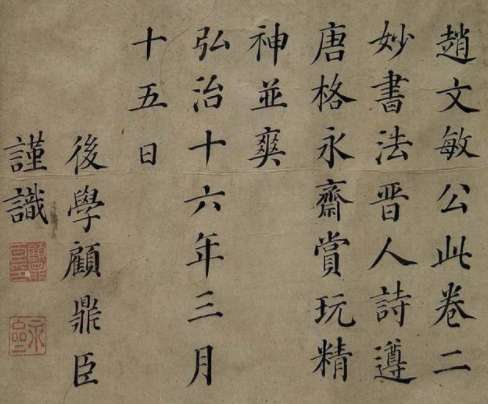 趙文敏公此卷二
妙書法晋人詩遵
唐格永齋賞玩精
神並爽
弘治十六年三月
十五日
後學顧鼎臣
謹識